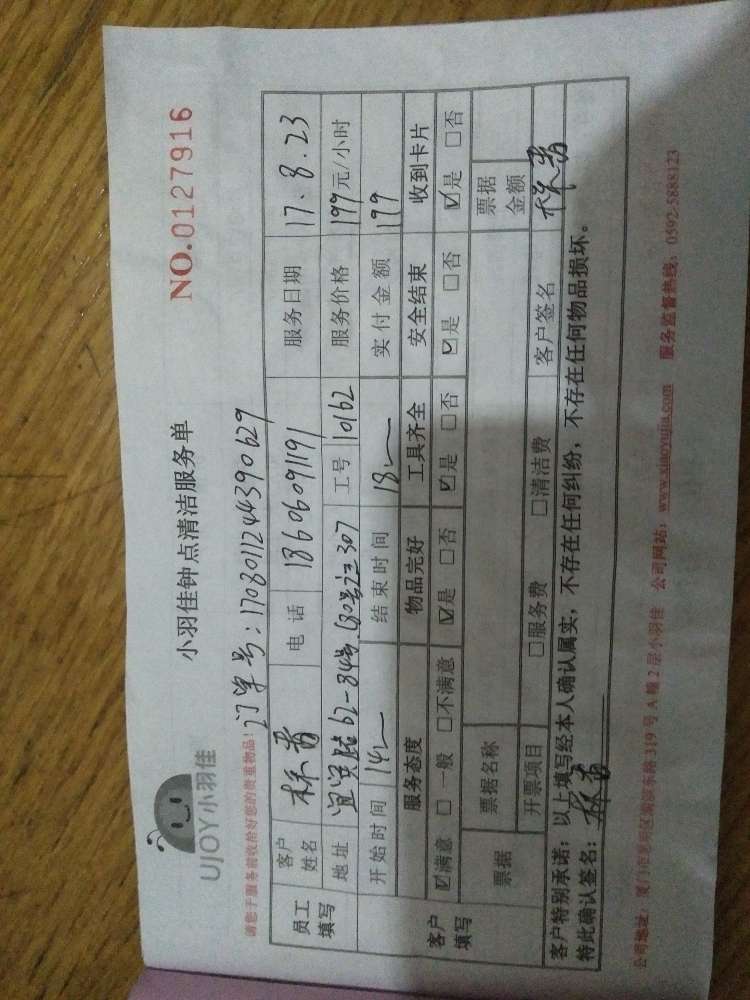 UJOY小羽佳
小羽佳钟点清洁服务单
NO.0127916
请您于服务前收拾好您的贵重物品!
订单号:1708011244390629
员工填写
客户姓名 林 电话 18606091191 服务日期 17.8.23
地址 宜宾路62-84号(80号之三307 工号 10162 服务价格 199元/小时
开始时间 14 结束时间 18 实付金额 199
客户填写
服务态度 物品完好 工具齐全 安全结束 收到卡片
☑满意 □一般 □不满意 ☑是 □否 ☑是 □否 ☑是 □否 ☑是 □否
票据 票据名称 票据金额
开票项目 □服务费 □清洁费 客户签名 林
客户特别承诺:以上填写经本人确认属实,不存在任何纠纷,不存在任何物品损坏。
特此确认签名: 林
公司地址:厦门市思明区湖滨东路319号A幢2层小羽佳 公司网站:www.xiaoyujia.com 服务监督热线:0592-5888123